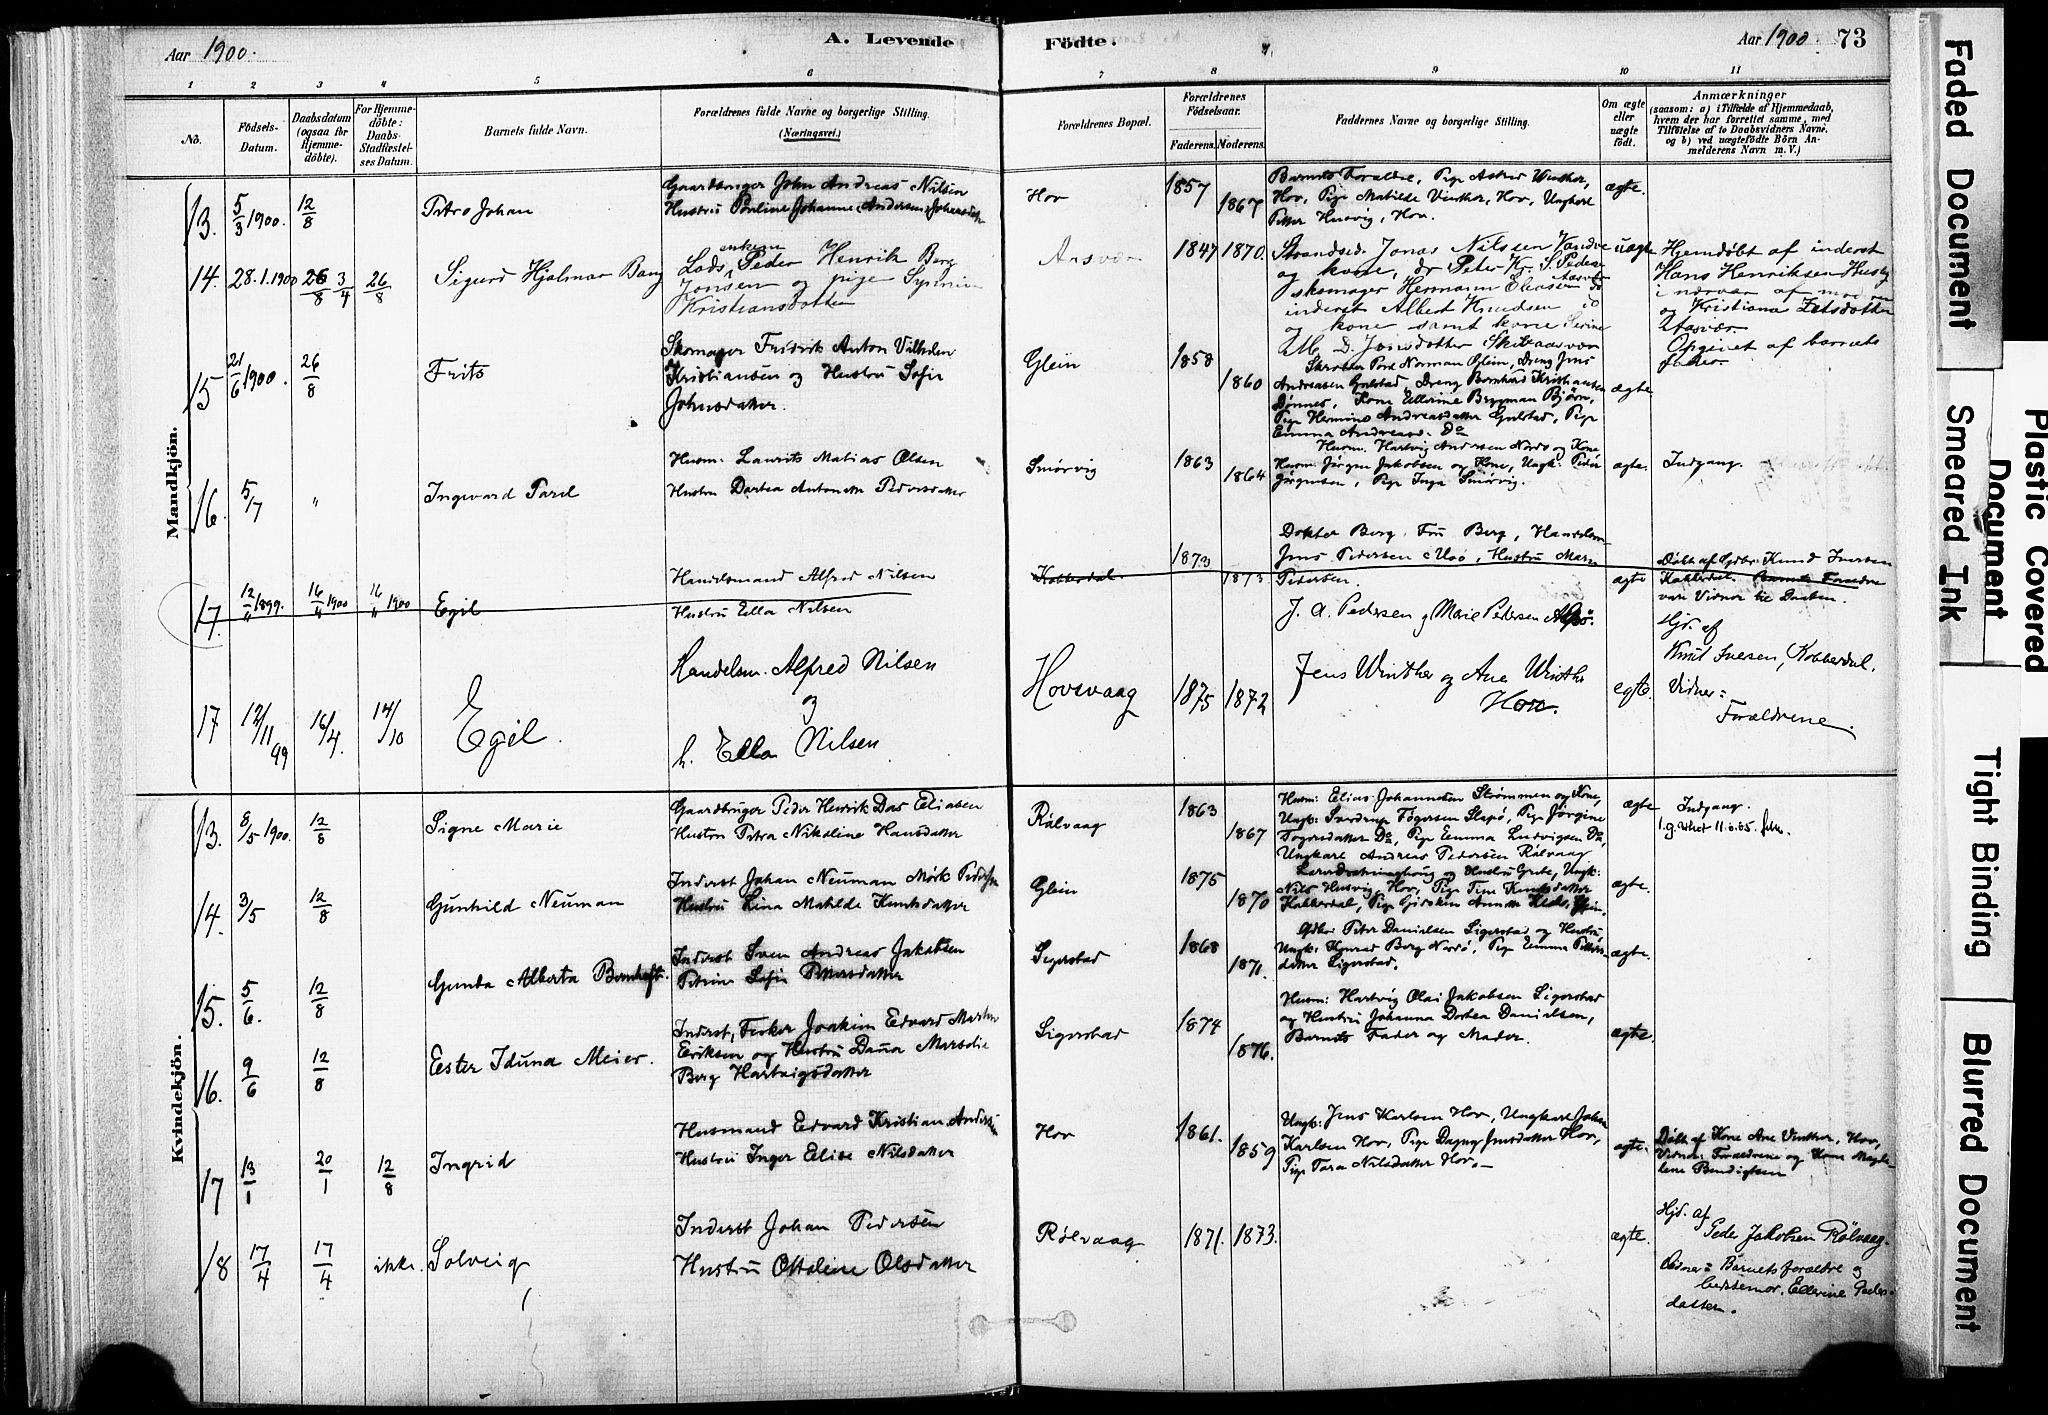 Aar 1900.
A. Levende
Födte.
Aar 1900.
73
1 2 3 4 5 6 7 8 9 10 11
No.
Födsels-
Datum.
Daabsdatum
(ogsaa for
Hjemme-
döbte).
For Hjemme-
döbte:
Daabs-
Stadfæstel-
ses Datum.
Barnets fulde Navn.
Forældrenes fulde Navne og borgerlige Stilling.
(Næringsvei.)
Forældrenes Bopæl.
Forældrenes
Födselsaar.
Faderens. Moderens.
Faddernes Navne og borgerlige Stilling.
Om ægte
eller
uægte
födt.
Anmærkninger
(saasom: a) i Tilfælde af Hjemmedaab,
hvem der har forrettet samme, med
Tilföielse af to Daabsvidners Navne,
og b) ved uægtefödte Börn An-
melderens Navn m. V.)
Mandkjön.
13. 5/3 1900. 12/8
Petro Johan
Gaardbruger John Andreas Nilsen
Hustru Pauline Johanne Andersen
Hov
1857
1867
Barnets Forældre, Pige Astrid Winther,
Hov, Pige Matilde Vinther, Hov, Ungkarl
Petter Husvig, Hov.
ægte.
14. 28.1.1900 26/8 3/4 26/8
Sigurd Hjalmar Bang
enkem
Lods Peder Henrik Berg
Jonsen og pige
Kristiansdatter
Aasvær
1847 1870.
Strandsid. Jonas Nilssen Vandve
og kone, Peter Kr. S. Peders
skomager Hermann Eliassen
inderst Albert Knudsen do
og kone samt kone Serine
M. D. Jonsdatter
uægte
Hjemdøbt af inderst
Hans Henriksen Husby
i nærvær af moderen
og Kristiana
Aasvær.
Opgivet af barnets
fader.
15 21/6 1900. 26/8
Frits
Skomager Fredrik Anton Vilhelm
Kristiansen og Hustru Sofie
Johnsdatter.
Glein
1858
1860
Norman Glein, Dreng Jens
Andreasen Gulstad, Dreng Bernhard Kristiansen
Dønnes, Kone Ellerine Bergman Bjørn,
Pige Hermine Andreasdatter Gulstad, Pige
Emma Andreasd. Do
ægte
16. 5/7 "
Ingvard Parel
Husm: Laurits Matias Olsen
Hustru Dortea Antonette Pedersdatter
Smørvig
1863
1864
Husm. Hartvig Andersen Nordø og Kone
Husm: Jørgen Jakobsen og Kone, Ungk: Peder
Jørgensen, Pige Inga Smørvig.
ægte.
Indgang.
17. 12/11 1899. 16/4 1900 16/" 1900
Egil
Handelsmand Alfred Nilsen
Hustru Ella Nilsen
Kobberdal
1873
1873
Doktor Berg, Fru Berg, Handelsm.
Jens Pedersen, Hustru Marie
Pedersen.
J. A. Pedersen og Marie Pedersen
ægte
Døbt af Gdbr. Knud Iversen
Kobberdal. Barnets Forældre
vare Vidner til Daaben.
17 12/11 99 16/4. 14/10
Egil.
Handelsm. Alfred Nilsen
og
h. Ella Nilsen
Hovsvaag
1875 1872
Jens Winther og Ane Winther
Hov.
ægte.
Hjd. af
Knut Iversen, Kobberdal.
Vidner:
Forældrene.
Kvindekjön.
13. 8/5 1900. 12/8
Signe Marie
Gaardbruger Peder Henrik Das Eliasen
Hustru Petra Nikoline Hansdatter
Rølvaag
1863
1867
Husm: Elias Johannesen Strømmen og Kone,
Ungk: Sverdrup Tøgersen Slapø, Pige Jørgine
Tøgersdatter Do, Pige Emma Ludvigsen Do,
Ungkarl Andreas Pedersen Rølvaag
ægte
Indgang.
14. 3/5 12/8
Gunhild Neuman
Inderst Johan Neuman Mørk Pedersen
Hustru Lina Matilde Knutsdatter
Glein
1875
1870
og Hustru Grete, Ungk:
Nils Husvig, Hov, Pige Tine Knutsdatter
Kobberdal, Pige Glein.
ægte.
15. 5/6. 12/8
Gunda Alberta Bernhoft.
Inderst Sven Andreas Jakobsen
Petrine Sofie Pettersdatter
Sigerstad
1868
1871.
Gdbr: Peter Danielsen Sigerstad og Hustru
Ungk: Konrad Berg Nordø, Pige Emma Petters-
datter Sigerstad.
ægte.
16. 9/6 12/8
Ester Iduna Meier.
Inderst, Fisker Joakim Edvard Martin
Eriksen og Hustru Dana Marselie
Berg Hartvigsdatter
Sigerstad
1874
1876.
Husm: Hartvig Olai Jakobsen Sigerstad
og Hustru Johanna Dortea Danielsen,
Barnets Fader og Moder.
ægte.
17 13/1 20/1 12/8
Ingrid
Husmand Edvard Kristian Andersen
Hustru Inger Elise Nilsdatter
Hov
1861.
1859
Ungk: Jens Karlsen Hov, Ungkarl Johan
Karlsen Hov, Pige Dagny Jensdatter Hov,
Pige Tara Nilsdatter Hov.
ægte.
Døbt af Kone Ane Vinther, Hov,
Vidner: Forældrene og Kone Magda-
lene Bendigtsen
18 17/4 17/4 ikke.
Solveig
Inderst Johan Pedersen
Hustru Ottoline Olsdatter
Rølvaag
1871. 1873.
ægte.
Hjd. af
Peder Jakobsen Rølvaag.
Vidner: Barnets forældre og
bestemor, Ellerine Peders-
datter.
Faded Document
Smeared Ink
Plastic Covered
Document
Tight Binding
Blurred Document